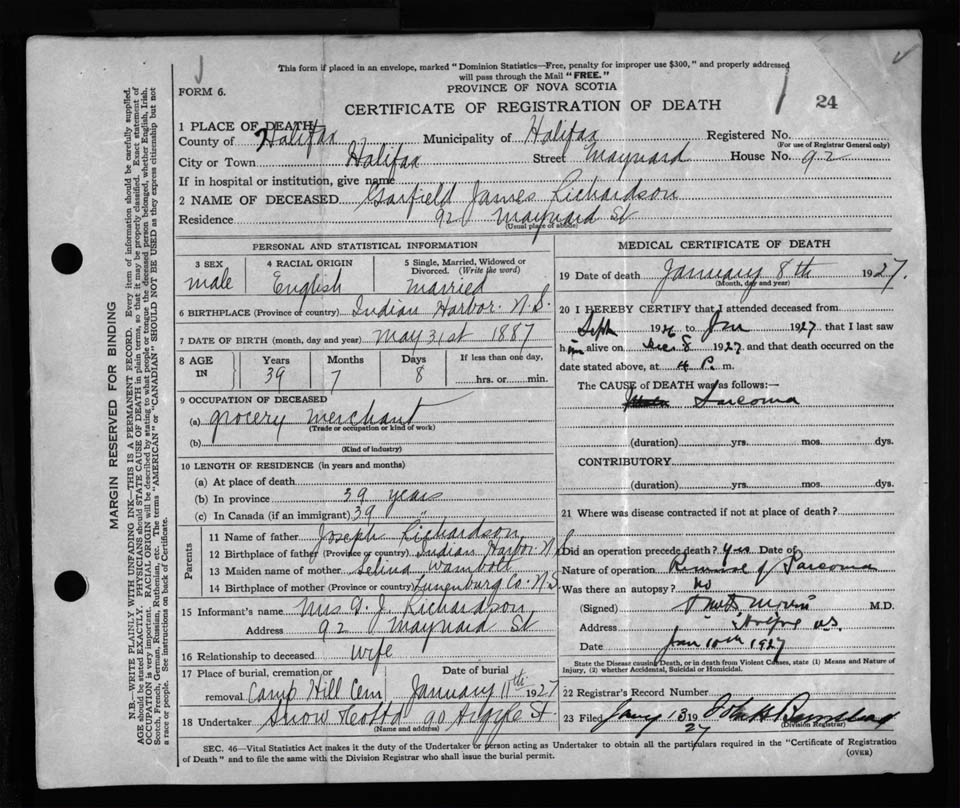 This form if placed in an envelope, marked "Dominion Statistics—Free, penalty for improper use $300," and properly addressed
will pass through the Mail "FREE."
FORM 6.
PROVINCE OF NOVA SCOTIA
CERTIFICATE OF REGISTRATION OF DEATH
24
1 PLACE OF DEATH
County of Halifax Municipality of Halifax Registered No.
(For use of Registrar General only)
City or Town Halifax Street Maynard House No. 92
If in hospital or institution, give name
2 NAME OF DECEASED Garfield James Richardson
Residence 92 Maynard St
(Usual place of abode)
PERSONAL AND STATISTICAL INFORMATION
3 SEX male
4 RACIAL ORIGIN English
5 Single, Married, Widowed or Divorced. (Write the word) Married
6 BIRTHPLACE (Province or country) Indian Harbor. N.S.
7 DATE OF BIRTH (month, day and year) May 31st 1887
8 AGE IN Years 39 Months 7 Days 8 If less than one day, hrs. or min.
9 OCCUPATION OF DECEASED
(a) grocery merchant
(Trade or occupation or kind of work)
(b)
(Kind of industry)
10 LENGTH OF RESIDENCE (in years and months)
(a) At place of death
(b) In province 39 years
(c) In Canada (if an immigrant) 39 "
Parents
11 Name of father Joseph Richardson
12 Birthplace of father (Province or country) Indian Harbor N.S
13 Maiden name of mother Selina Wambolt
14 Birthplace of mother (Province or country) Lunenburg Co. N.S
15 Informant's name Mrs G. J. Richardson
Address 92 Maynard St
16 Relationship to deceased wife
17 Place of burial, cremation or removal Camp Hill Cem Date of burial January 11th 1927
18 Undertaker Snow & Co Ltd 90 Argyle St
(Name and address)
MEDICAL CERTIFICATE OF DEATH
19 Date of death January 8th 1927.
(Month, day and year)
20 I HEREBY CERTIFY that I attended deceased from
Sept 1926 to Jan 1927 that I last saw
him alive on Dec 8 1927 and that death occurred on the
date stated above, at 4 P. m.
The CAUSE of DEATH was as follows:—
Sarcoma
(duration) yrs. mos. dys.
CONTRIBUTORY
(duration) yrs. mos. dys.
21 Where was disease contracted if not at place of death?
Did an operation precede death? Yes Date of
Nature of operation Sarcoma
Was there an autopsy? No
(Signed) M.D.
Address
Date Jan 10th 1927
State the Disease causing Death, or in death from Violent Causes, state (1) Means and Nature of
Injury, (2) whether Accidental, Suicidal or Homicidal.
22 Registrar's Record Number
23 Filed Jany 13 1927
(Division Registrar)
SEC. 46—Vital Statistics Act makes it the duty of the Undertaker or person acting as Undertaker to obtain all the particulars required in the "Certificate of Registration
of Death" and to file the same with the Division Registrar who shall issue the burial permit.
(OVER)
MARGIN RESERVED FOR BINDING
N.B.—WRITE PLAINLY WITH UNFADING INK—THIS IS A PERMANENT RECORD. Every item of information should be carefully supplied.
AGE should be stated EXACTLY. PHYSICIANS should STATE CAUSE OF DEATH in plain terms, so that it may be properly classified. Exact statement of
OCCUPATION is very important. RACIAL ORIGIN will be described by stating to what people or tongue the deceased person belonged, whether English, Irish,
Scotch, French, German, Russian, Ruthenian, etc. The terms "AMERICAN" or "CANADIAN" SHOULD NOT BE USED as they express citizenship but not
a race or people. See instructions on back of Certificate.